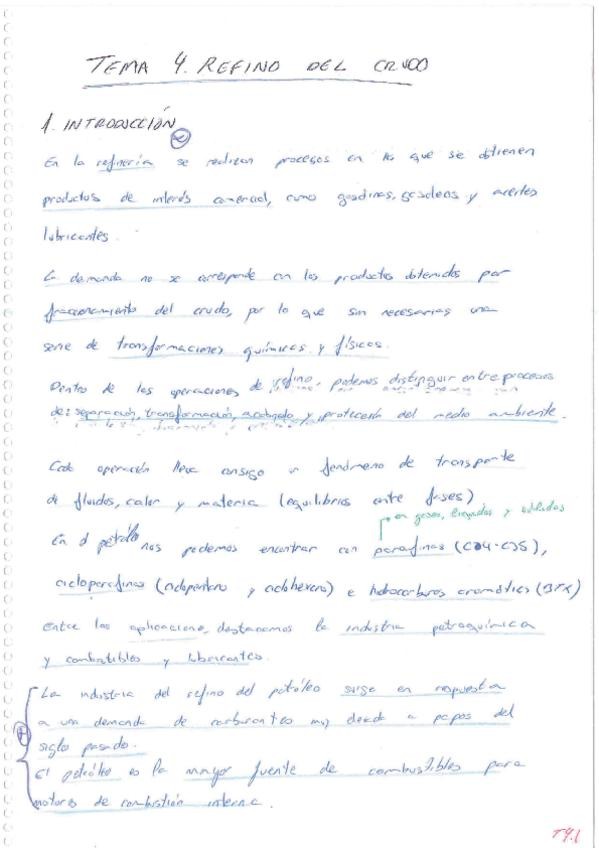 TEMA 4. REFINO DEL CRUDO
1. INTRODUCCIÓN
En la refinería se realizan procesos en los que se obtienen
productos de interés comercial, como gasolinas, gasoleos y aceites
lubricantes.
La demanda no se corresponde con los productos obtenidos por
fraccionamiento del crudo, por lo que son necesarias una
serie de transformaciones químicas y físicas.
Dentro de las operaciones de refino, podemos distinguir entre procesos
de: separación, transformación, acabado y protección del medio ambiente.
Cada operación lleva consigo un fenómeno de transporte
de fluidos, calor y materia (equilibrios entre fases)
en gases, líquidos y sólidos
En el petróleo nos podemos encontrar con parafinas (C04-C35),
cicloparafinas (ciclopentano y ciclohexano) e hidrocarburos aromáticos (BTX)
Entre las aplicaciones, destacamos la industria petroquímica
y combustibles y lubricantes.
La industria del refino del petróleo surge en respuesta
a una demanda de carburantes muy desde a del
siglo pasado.
El petróleo es la mayor fuente de combustibles para
motores de combustión interna.
T4.1